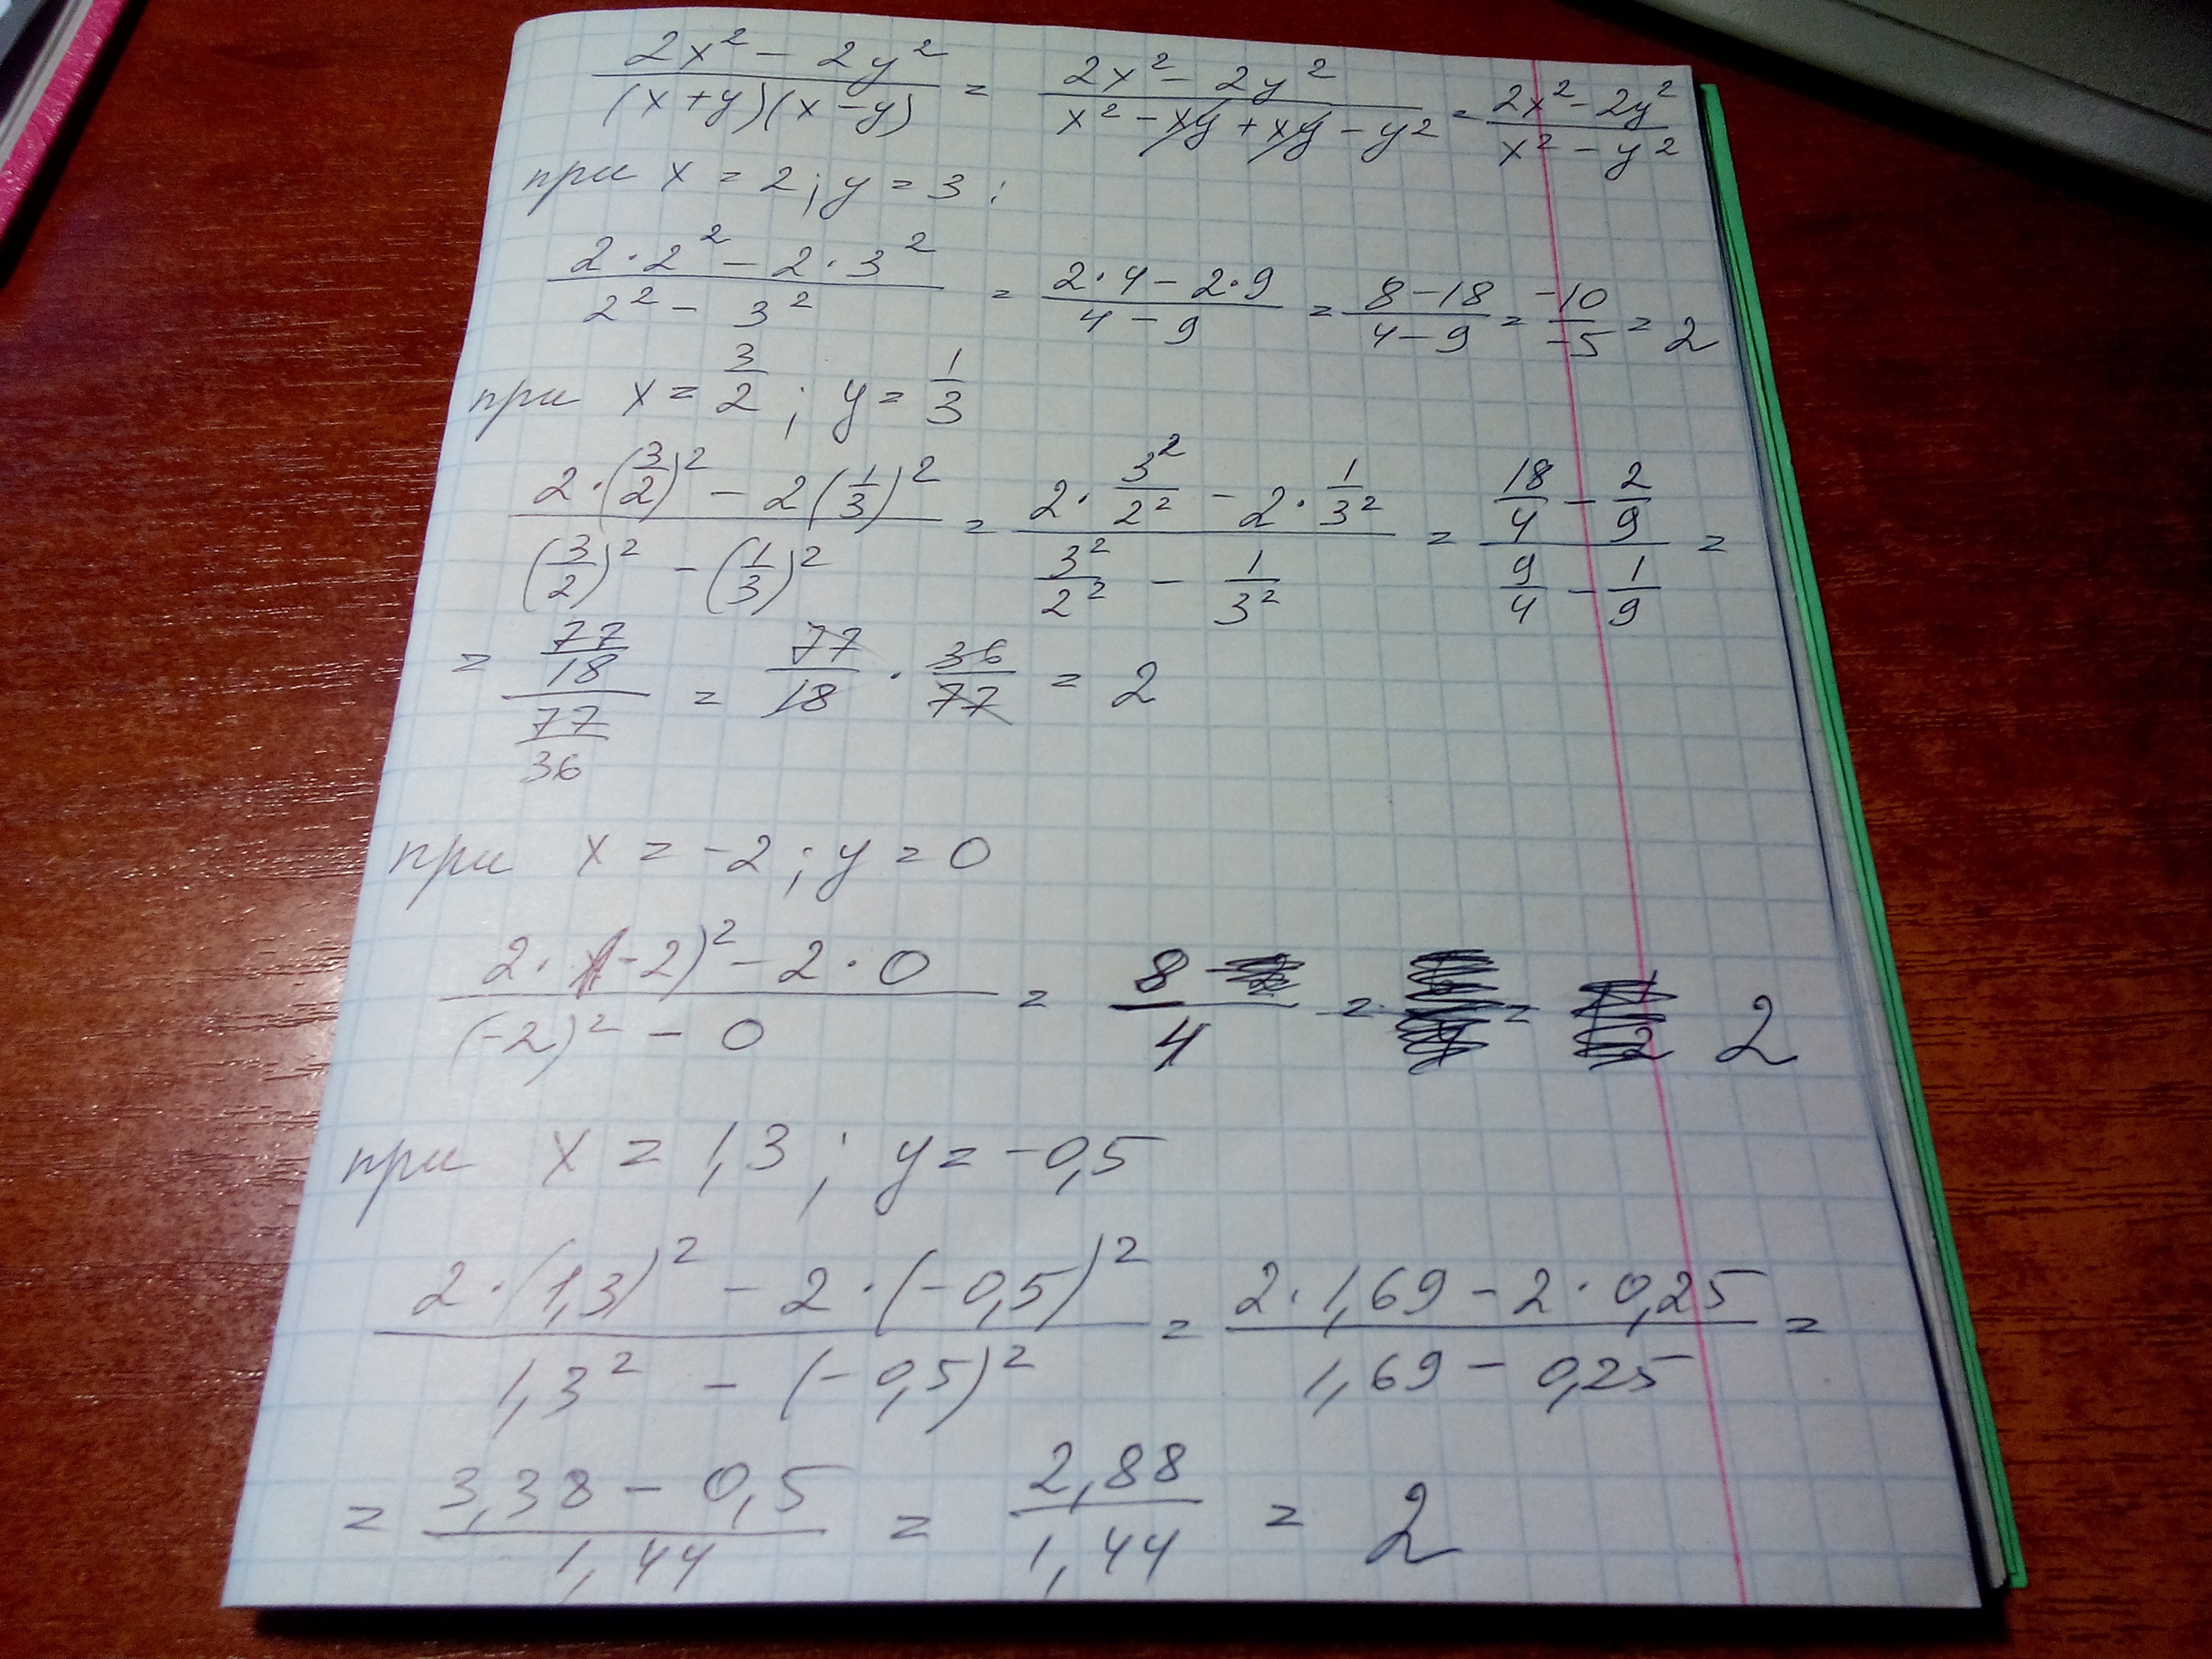 (2x² - 2y²)/((x+y)(x-y)) = (2x² - 2y²)/(x² - xy + xy - y²) = (2x² - 2y²)/(x² - y²)
при x = 2; y = 3:
(2·2² - 2·3²)/(2² - 3²) = (2·4 - 2·9)/(4 - 9) = (8-18)/(4-9) = -10/-5 = 2
при x = 3/2; y = 1/3
(2·(3/2)² - 2(1/3)²)/((3/2)² - (1/3)²) = (2·3²/2² - 2·1/3²)/(3²/2² - 1/3²) = (18/4 - 2/9)/(9/4 - 1/9) =
= (77/18)/(77/36) = 77/18 · 36/77 = 2
при x = -2; y = 0
(2·(-2)² - 2·0)/((-2)² - 0) = 8/4 = = 2
при x = 1,3; y = -0,5
(2·(1,3)² - 2·(-0,5)²)/(1,3² - (-0,5)²) = (2·1,69 - 2·0,25)/(1,69 - 0,25) =
= (3,38 - 0,5)/1,44 = 2,88/1,44 = 2